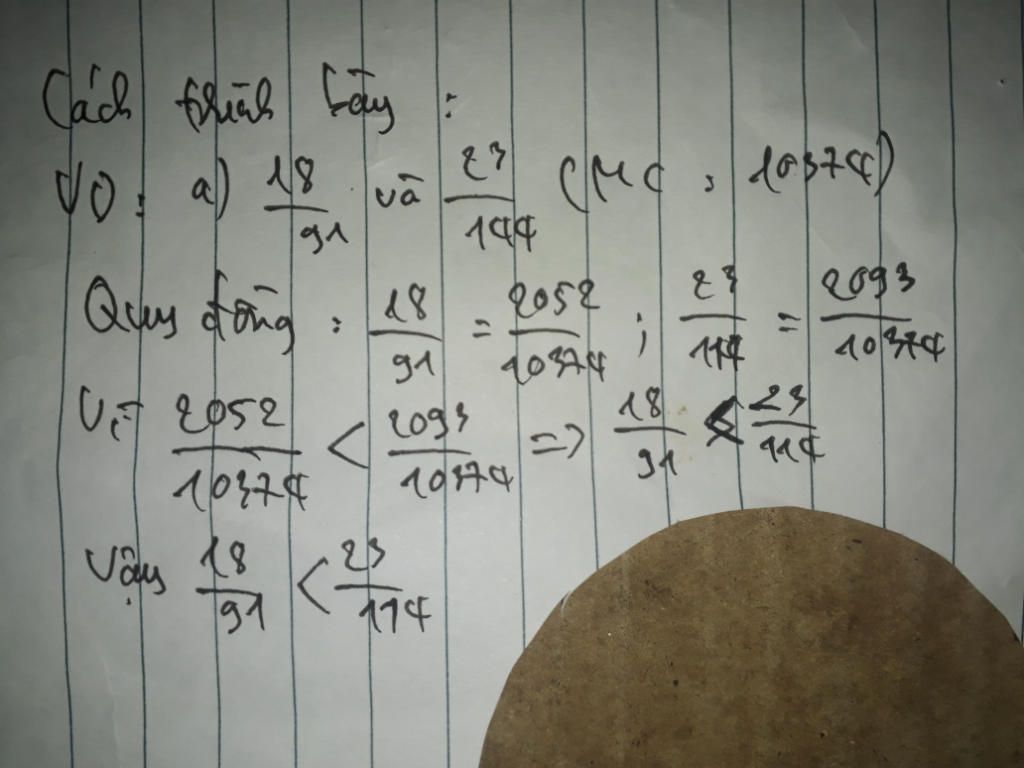 Cách trình bày :
VD: a) 18/91 và 23/114 (MC : 10374)
Quy đồng : 18/91 = 2052/10374 ; 23/114 = 2093/10374
Vì 2052/10374 < 2093/10374 => 18/91 < 23/114
Vậy 18/91 < 23/114